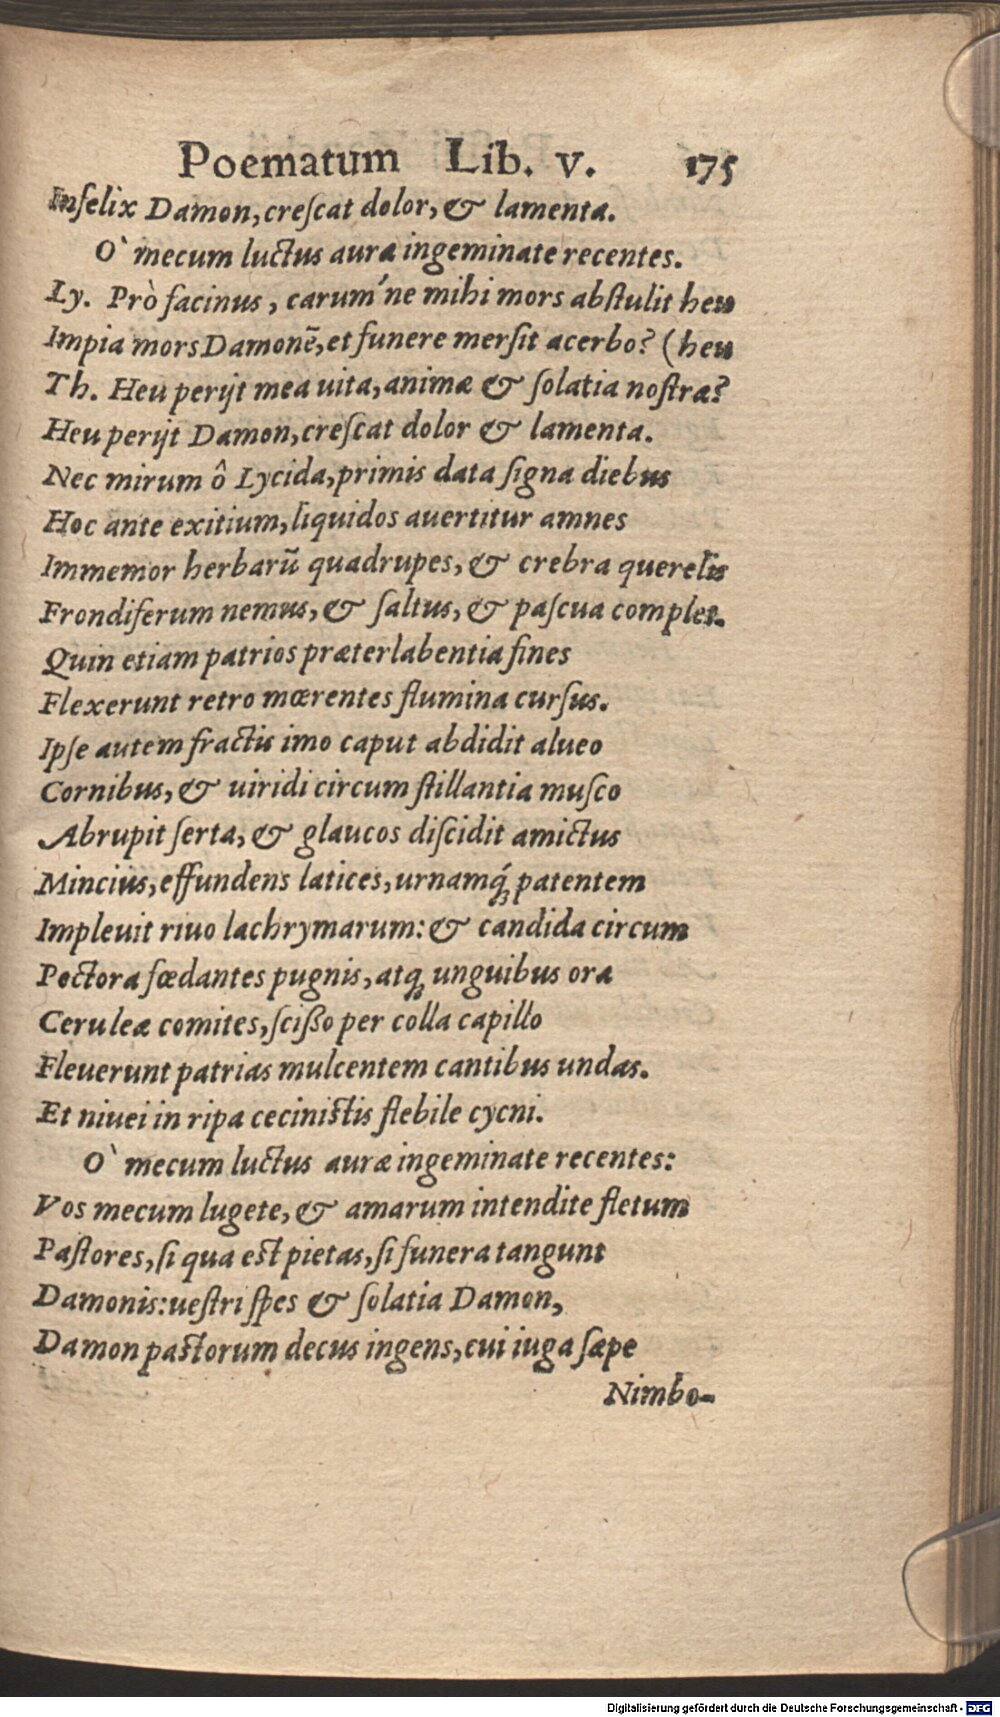 Poematum Lib. v. 175
Infelix Damon, creſcat dolor, & lamenta.
O` mecum luctus auræ ingeminate recentes.
Ly. Prò facinus, carum'ne mihi mors abſtulit heu
Impia mors Damonē, et funere merſit acerbo? (heu
Th. Heu perijt mea uita, animæ & ſolatia noſtræ?
Heu perijt Damon, creſcat dolor & lamenta.
Nec mirum ô Lycida, primis data ſigna diebus
Hoc ante exitium, liquidos auertitur amnes
Immemor herbarū quadrupes, & crebra querelis
Frondiferum nemus, & ſaltus, & paſcua complet.
Quin etiam patrios præterlabentia fines
Flexerunt retro mœrentes flumina curſus.
Ipſe autem fractis imo caput abdidit alueo
Cornibus, & uiridi circum ſtillantia muſco
Abrupit ſerta, & glaucos diſcidit amictus
Mincius, effundens latices, urnamq́; patentem
Impleuit riuo lachrymarum: & candida circum
Pectora fœdantes pugnis, atq; unguibus ora
Ceruleæ comites, ſciſſo per colla capillo
Fleuerunt patrias mulcentem cantibus undas.
Et niuei in ripa ceciniſtis flebile cycni.
O` mecum luctus auræ ingeminate recentes:
Vos mecum lugete, & amarum intendite fletum
Paſtores, ſi qua eſt pietas, ſi funera tangunt
Damonis: ueſtri ſpes & ſolatia Damon,
Damon paſtorum decus ingens, cui iuga ſæpe
Nimbo-
Digitalisierung gefördert durch die Deutsche Forschungsgemeinschaft - DFG